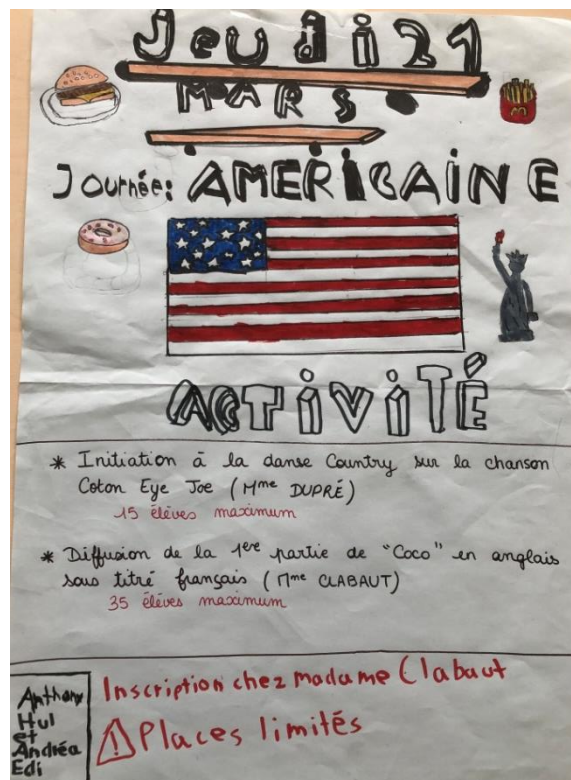 Jeudi 21
MARS
Journée: AMERiCAiNE
ACTiViTÉ
* Initiation à la danse Country sur la chanson
Coton Eye Joe (Mme DUPRÉ)
15 élèves maximum
* Diffusion de la 1ere partie de "Coco" en anglais
sous titré français (Mme CLABAUT)
35 élèves maximum
Inscription chez madame Clabaut
⚠ Places limités
Anthony
Hul
et
Andréa
Edi